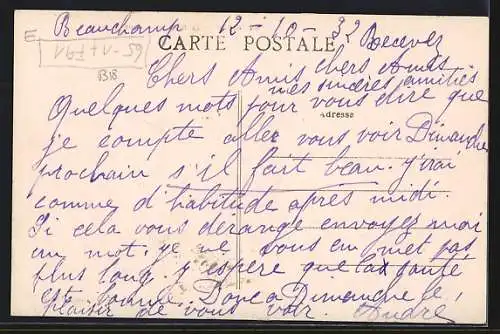 Beauchamp 12-10-32
CARTE POSTALE
Recevez
chers Amis
mes sincères amitiés
B18
Adresse
Chers Amis
Quelques mots pour vous dire que
je compte aller vous voir Dimanche
prochain s'il fait beau. j'irai
comme d'habitude après midi.
Si cela vous dérange envoyez moi
un mot. je ne vous en met pas
plus long. j'espère que la santé
est bonne. Donc a Dimanche le
plaisir de vous voir. André